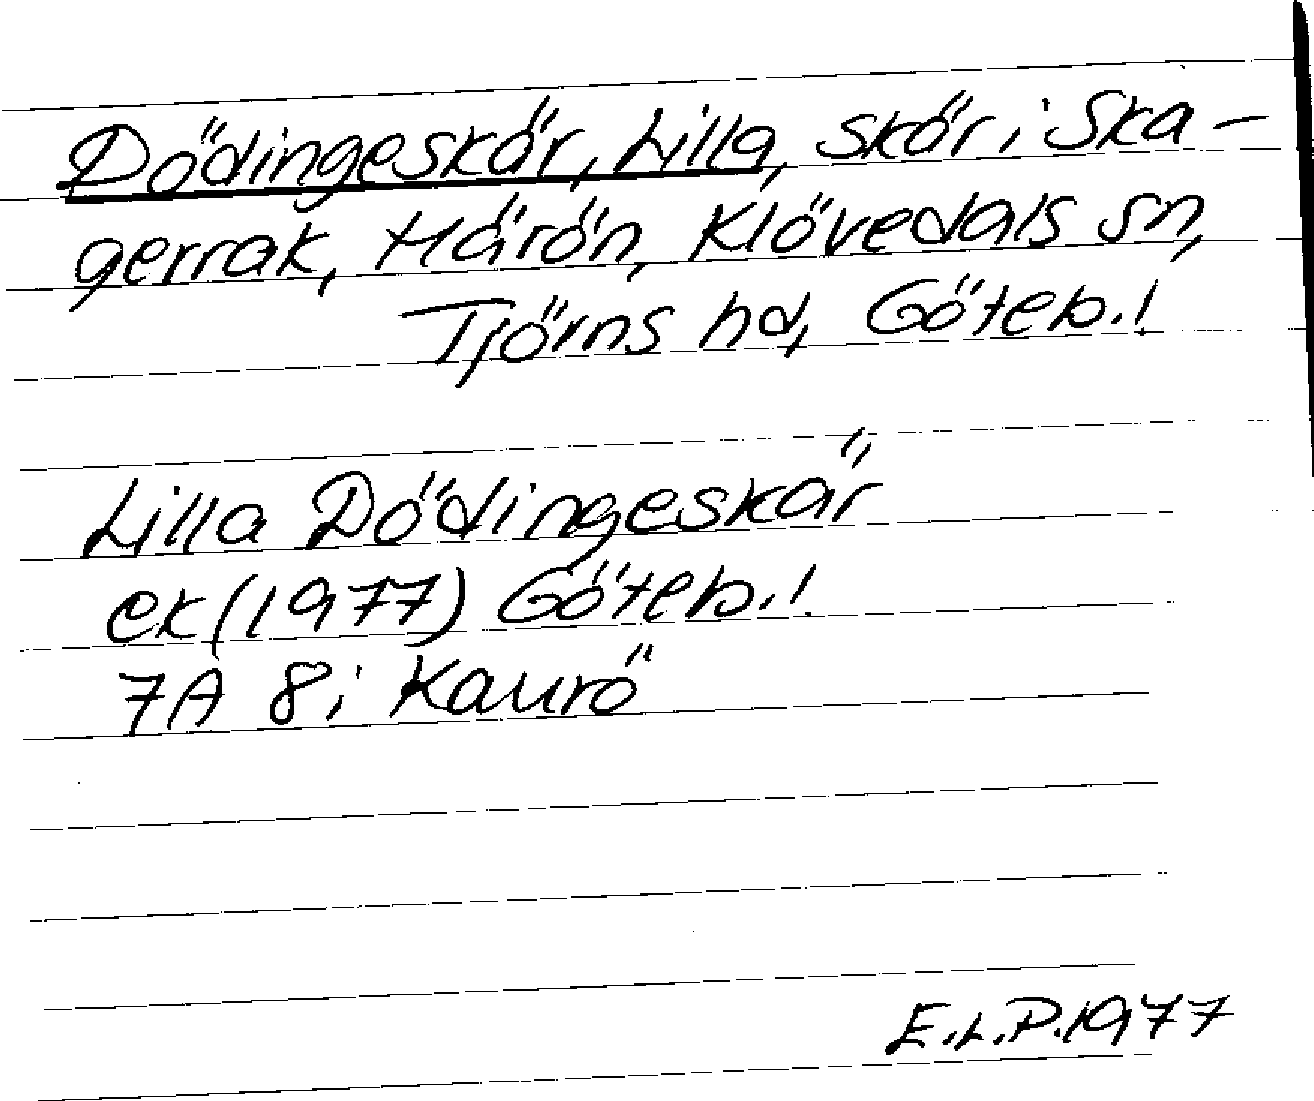 Dödingeskär, Lilla, skär i Ska-
gerrak, Härön, Klövedals sn,
Tjörns hd, Göteb.l
Lilla Dödingeskär
ek (1977) Göteb.l.
7A 8 i Kaurö
E.L.P. 1977